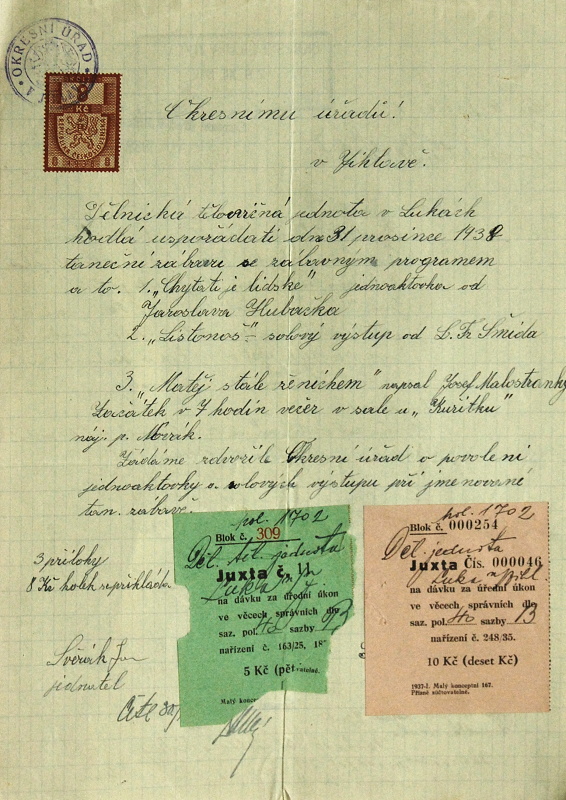 OKRESNÍ ÚŘAD
8
Kč
REPUBLIKA ČESKOSLOVENSKÁ
8 8
Okresnímu úřadu!
v Jihlavě.
Dělnická tělocvičná jednota v Lukách
hodlá uspořádati dne 31 prosince 1938
taneční zábavu se zábavným programem
a to. 1. „Chytati je lidské" jednoaktovka od
Jaroslava Hubačka
2. „Listonoš" – solový výstup od L. Fr Šmída
3. „Matěj stále ženichem" napsal Josef Malostranský
Začátek v 7 hodin večer v sale u „Kuřítků"
náj. p. Novák.
Žádáme zdvořile Okresní úřad o povolení
jednoaktovky a solových výstupu při jmenované
tan. zábavě.
3 přílohy
8 Kč kolek se přikládá
Svěrák Jan
jednatel
pol. 1702
Blok č. 309
Děl. těl. jednota
Juxta č. 11
Luka
na dávku za úřední úkon
ve věcech správních dle
saz. pol. sazby B
nařízení č. 163/25, 18
5 Kč (pět valutelné.
Malý konce
pol. 1702
Blok č. 000254
Děl. jednota
Juxta Čís. 000046
Luka n/Jihl
na dávku za úřední úkon
ve věcech správních dle
saz. pol. sazby B
nařízení č. 248/35.
10 Kč (deset Kč)
1937-I. Malý konceptní 167.
Přísně súčtovatelné.